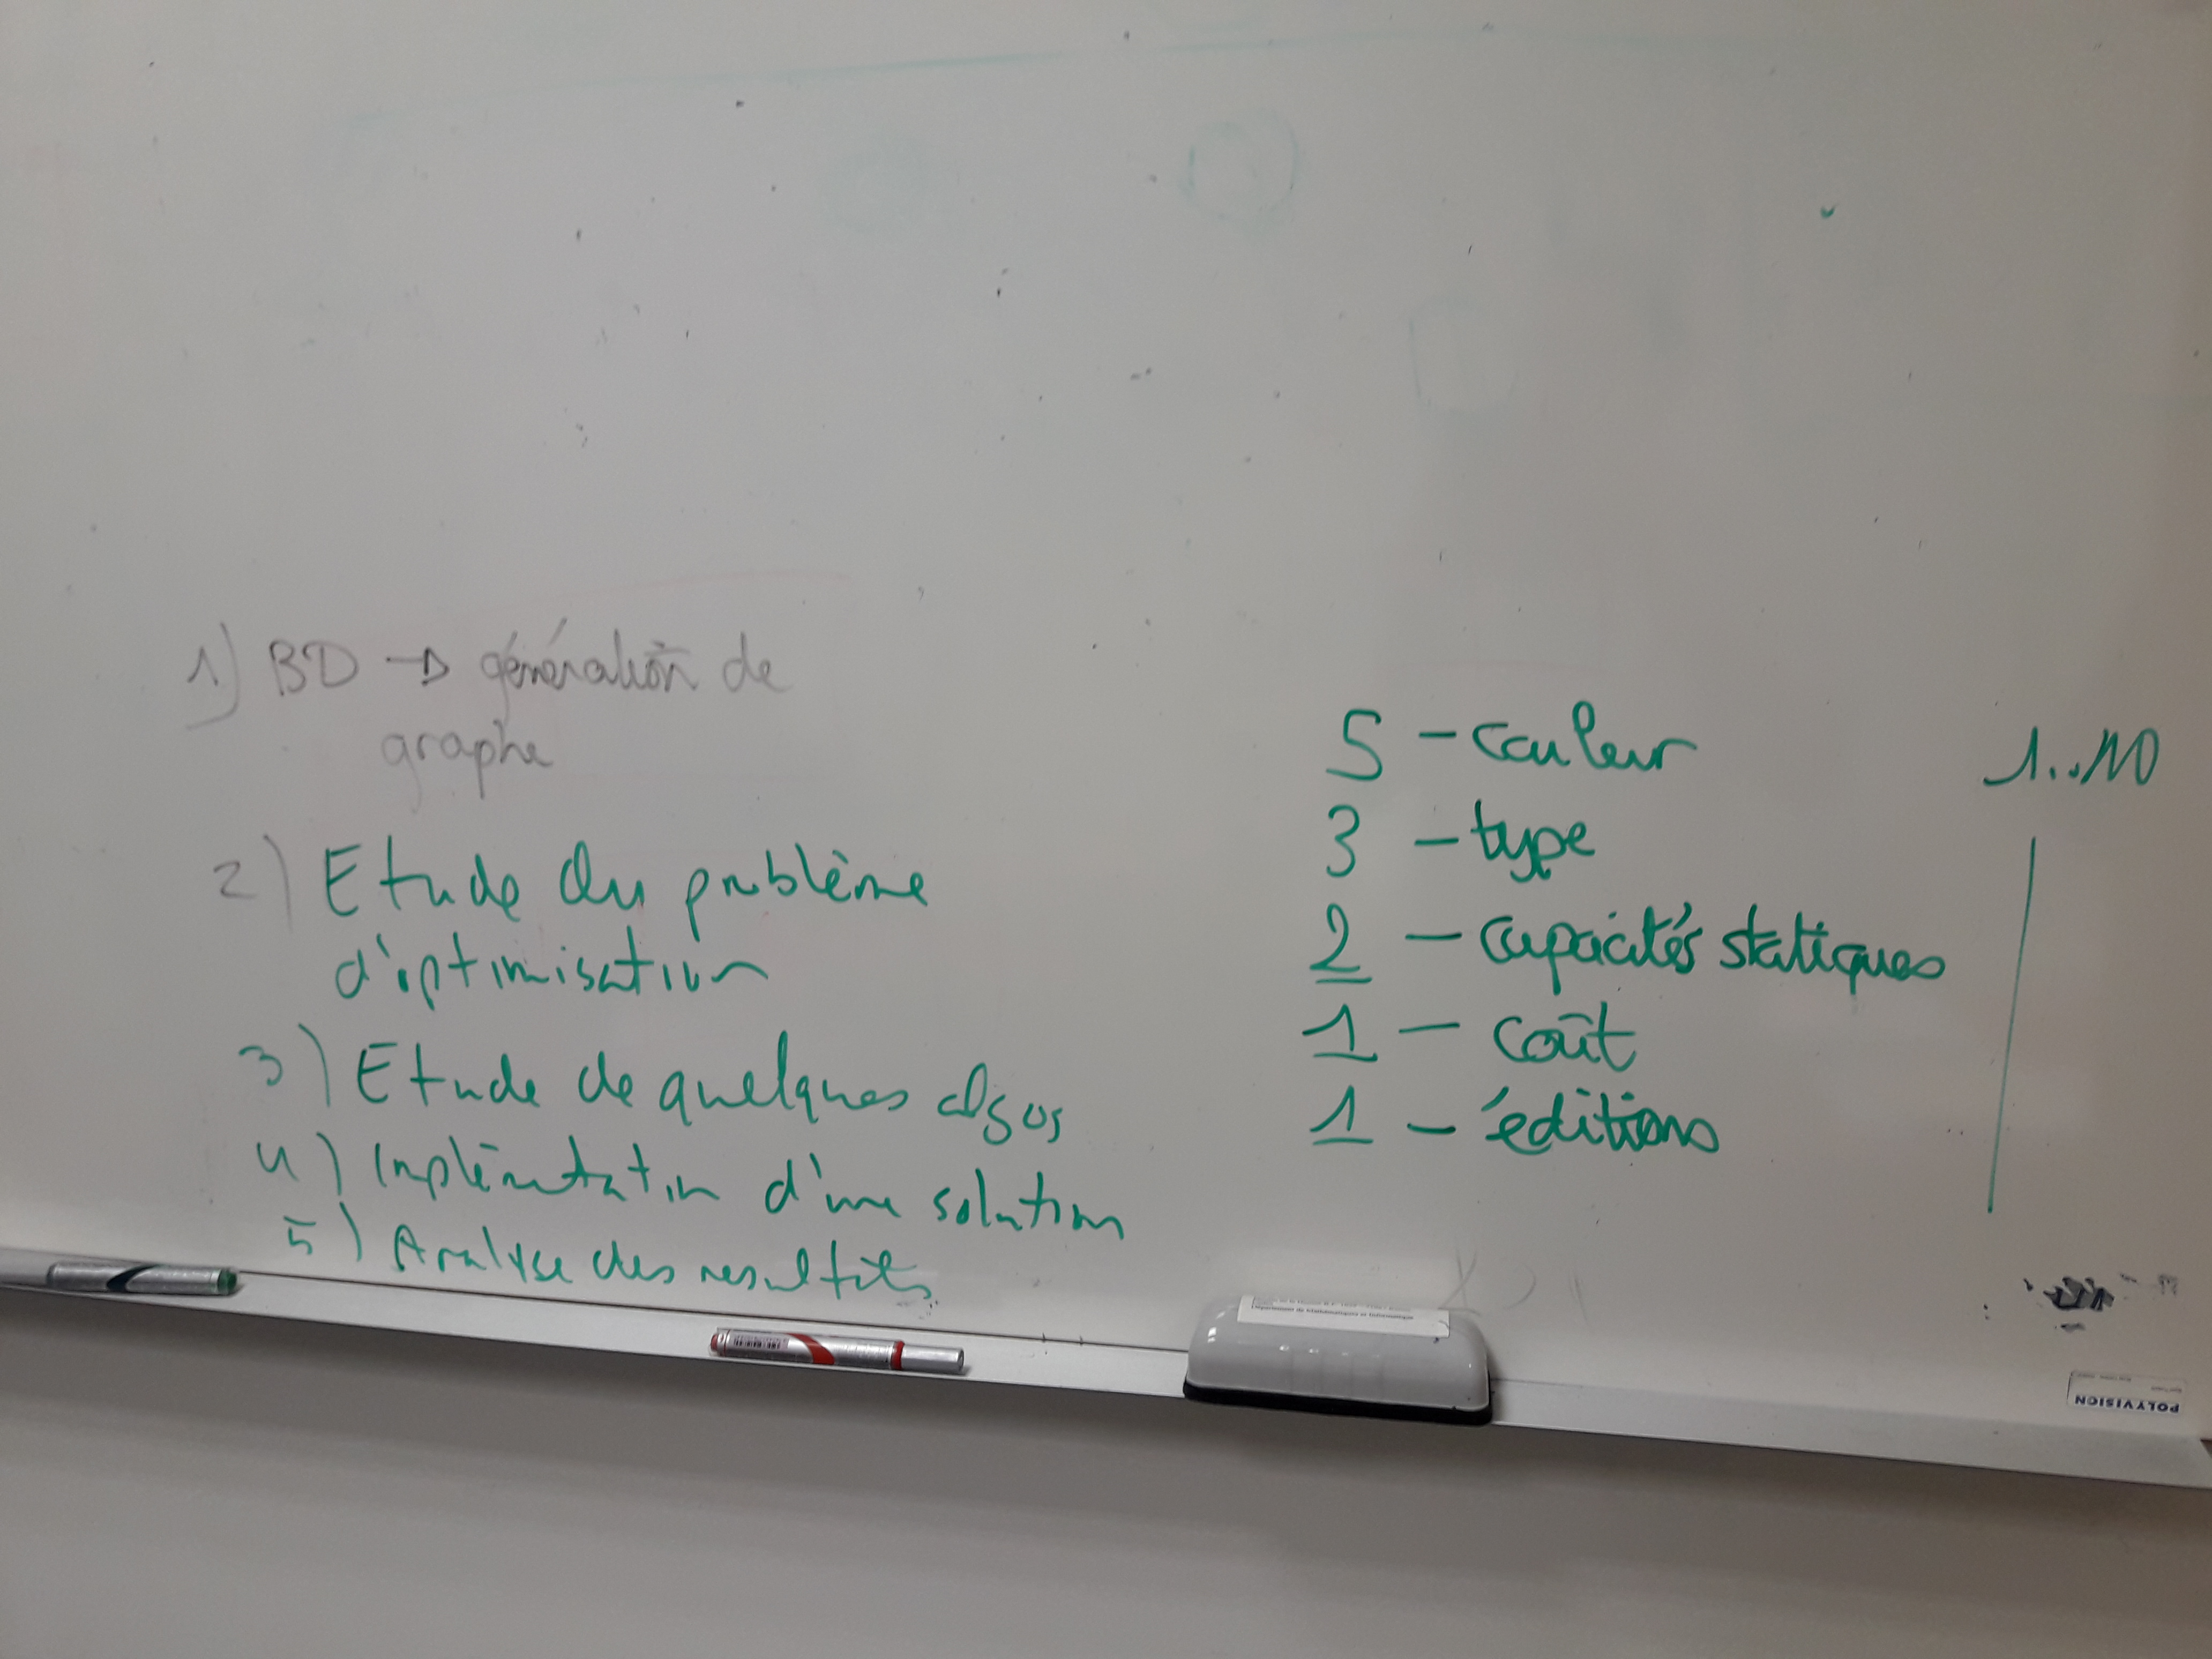 1) BD → génération de
graphe
2) Etude du problème
d'optimisation
3) Etude de quelques algos
4) Implémentation d'une solution
5) Analyse des resultats
5 - couleur
3 - type
2 - capacités statiques
1 - coût
1 - éditions
1..10
Département de Mathématiques et Informatique
POLYVISION